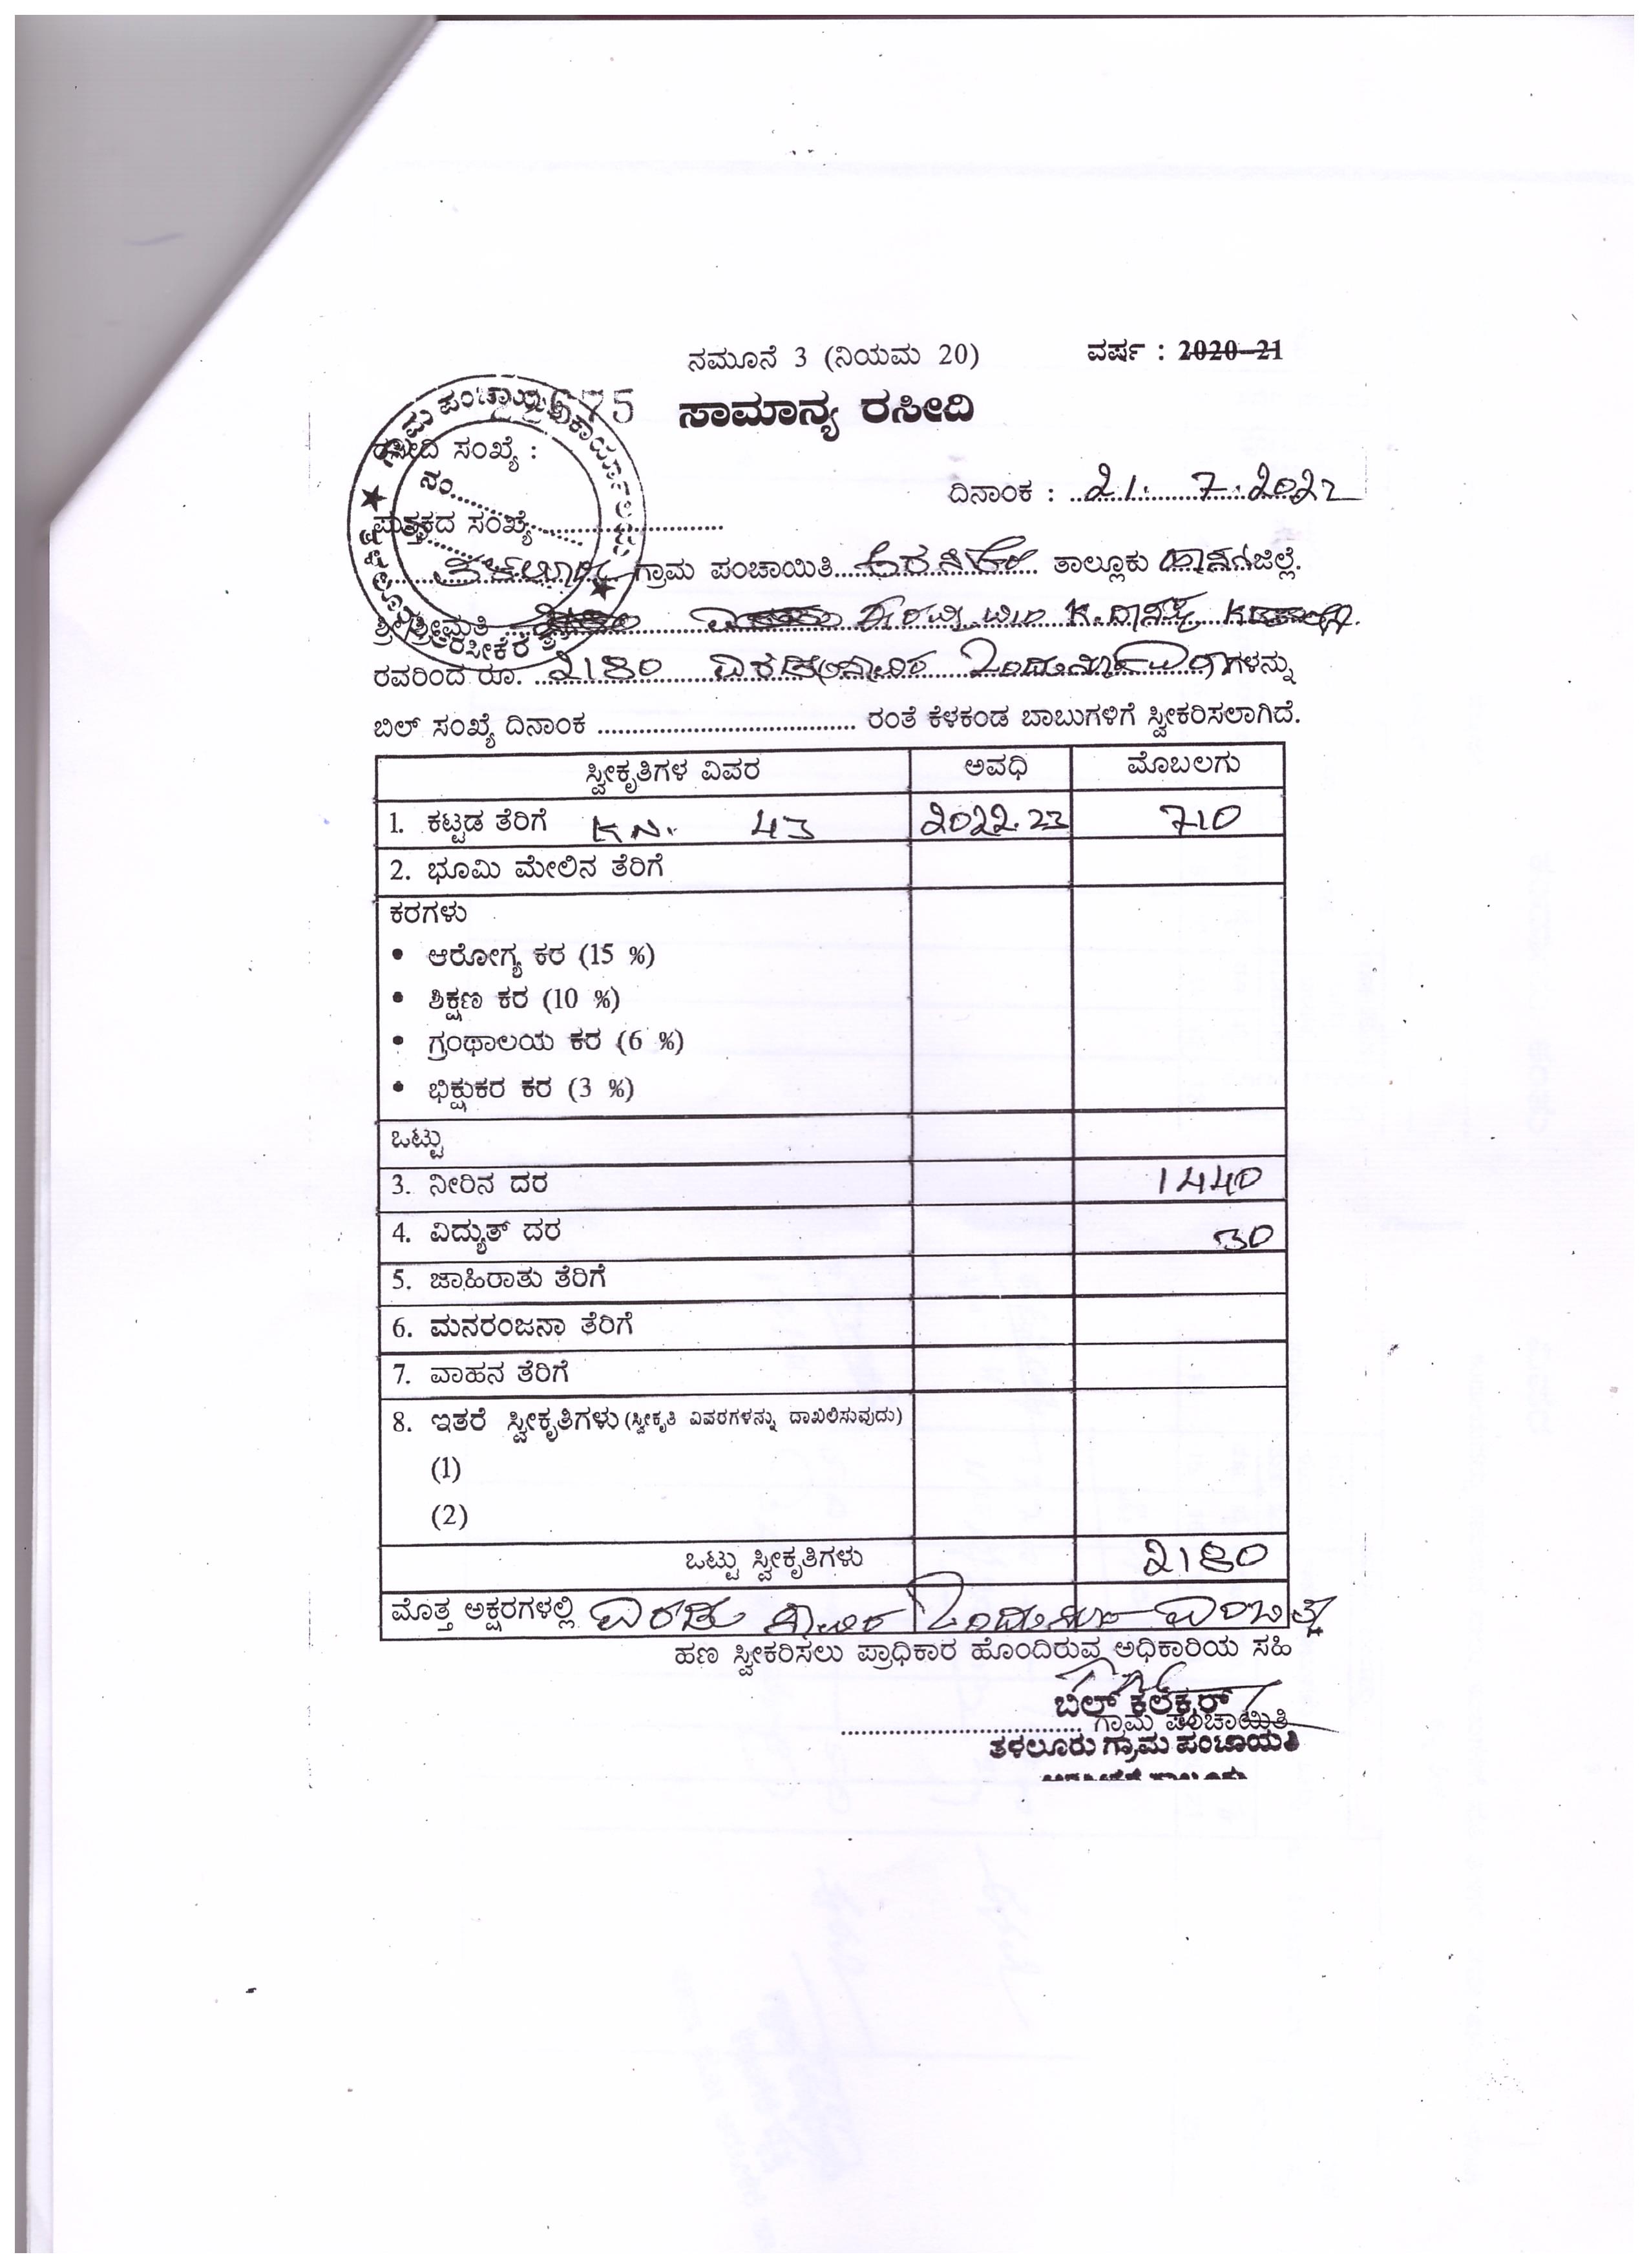 ನಮೂನೆ 3 (ನಿಯಮ 20) ವರ್ಷ : 2020-21
ಸಾಮಾನ್ಯ ರಸೀದಿ
ರಸೀದಿ ಸಂಖ್ಯೆ :
ನಂ.
ದಿನಾಂಕ : 21. 7. 2022
ಪುಸ್ತಕದ ಸಂಖ್ಯೆ
ಗ್ರಾಮ ಪಂಚಾಯಿತಿ ತಾಲ್ಲೂಕು ಹಾಸನ ಜಿಲ್ಲೆ.
ಶ್ರೀ/ಶ್ರೀಮತಿ
ರವರಿಂದ ರೂ. 2180 ಗಳನ್ನು
ಬಿಲ್ ಸಂಖ್ಯೆ ದಿನಾಂಕ ........ ರಂತೆ ಕೆಳಕಂಡ ಬಾಬುಗಳಿಗೆ ಸ್ವೀಕರಿಸಲಾಗಿದೆ.
ಸ್ವೀಕೃತಿಗಳ ವಿವರ ಅವಧಿ ಮೊಬಲಗು
1. ಕಟ್ಟಡ ತೆರಿಗೆ KN. 43 2022.23 710
2. ಭೂಮಿ ಮೇಲಿನ ತೆರಿಗೆ
ಕರಗಳು
• ಆರೋಗ್ಯ ಕರ (15 %)
• ಶಿಕ್ಷಣ ಕರ (10 %)
• ಗ್ರಂಥಾಲಯ ಕರ (6 %)
• ಭಿಕ್ಷುಕರ ಕರ (3 %)
ಒಟ್ಟು
3. ನೀರಿನ ದರ 1440
4. ವಿದ್ಯುತ್ ದರ 30
5. ಜಾಹಿರಾತು ತೆರಿಗೆ
6. ಮನರಂಜನಾ ತೆರಿಗೆ
7. ವಾಹನ ತೆರಿಗೆ
8. ಇತರೆ ಸ್ವೀಕೃತಿಗಳು (ಸ್ವೀಕೃತಿ ವಿವರಗಳನ್ನು ದಾಖಲಿಸುವುದು)
(1)
(2)
ಒಟ್ಟು ಸ್ವೀಕೃತಿಗಳು 2180
ಮೊತ್ತ ಅಕ್ಷರಗಳಲ್ಲಿ ಎರಡು ಸಾವಿರ
ಹಣ ಸ್ವೀಕರಿಸಲು ಪ್ರಾಧಿಕಾರ ಹೊಂದಿರುವ ಅಧಿಕಾರಿಯ ಸಹಿ
ಬಿಲ್ ಕಲೆಕ್ಟರ್
ಗ್ರಾಮ ಪಂಚಾಯಿತಿ
ತಳಲೂರು ಗ್ರಾಮ ಪಂಚಾಯತಿ